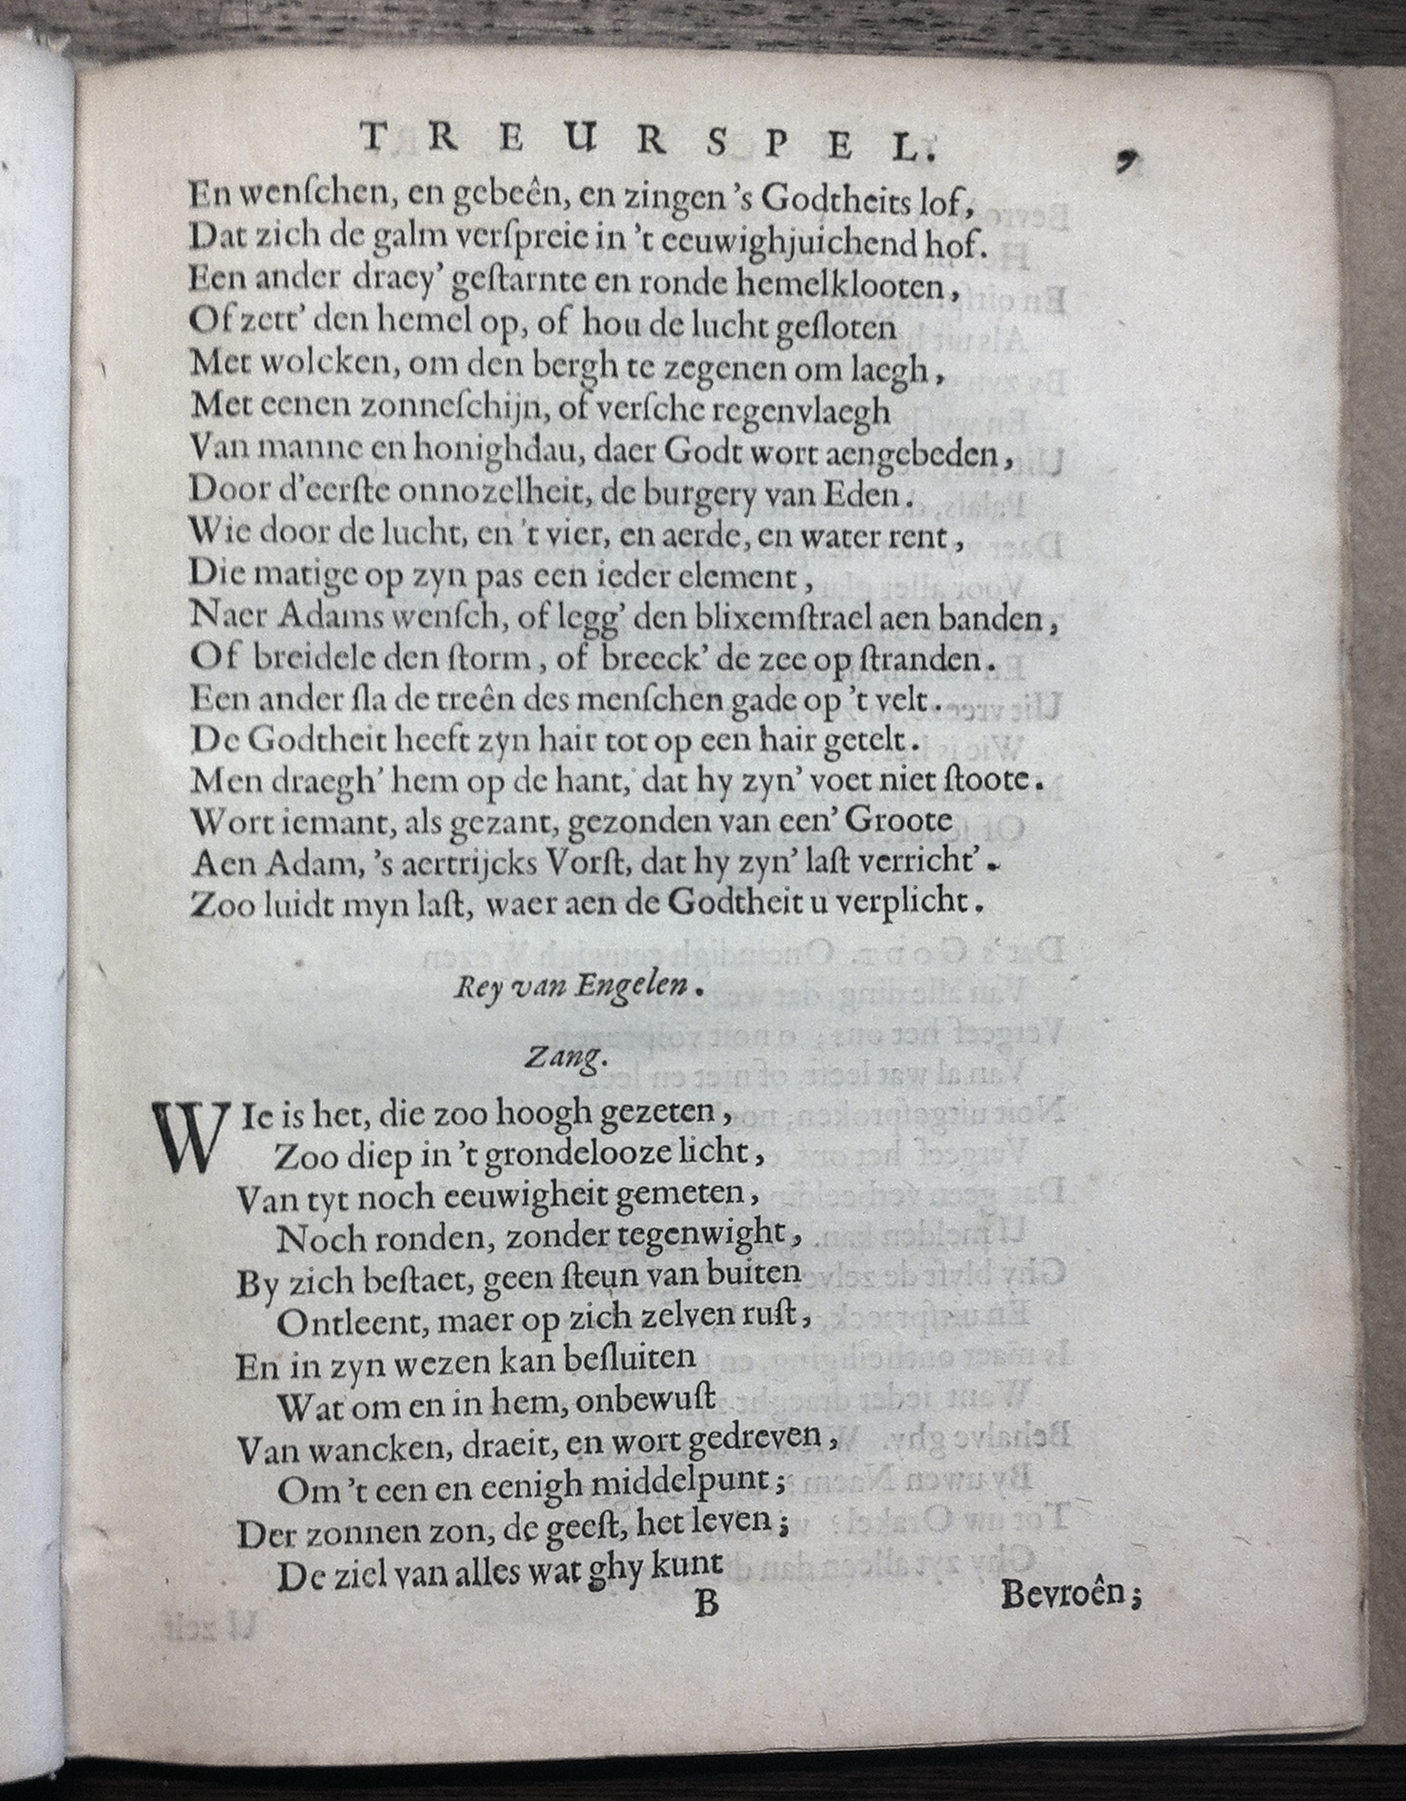 TREURSPEL. 9
En wenſchen, en gebeên, en zingen 's Godtheits lof,
Dat zich de galm verſpreie in 't eeuwighjuichend hof.
Een ander draey' geſtarnte en ronde hemelklooten,
Of zett' den hemel op, of hou de lucht geſloten
Met wolcken, om den bergh te zegenen om laegh,
Met eenen zonneſchijn, of verſche regenvlaegh
Van manne en honighdau, daer Godt wort aengebeden,
Door d'eerſte onnozelheit, de burgery van Eden.
Wie door de lucht, en 't vier, en aerde, en water rent,
Die matige op zyn pas een ieder element,
Naer Adams wenſch, of legg' den blixemſtrael aen banden,
Of breidele den ſtorm, of breeck' de zee op ſtranden.
Een ander ſla de treên des menſchen gade op 't velt.
De Godtheit heeft zyn hair tot op een hair getelt.
Men draegh' hem op de hant, dat hy zyn' voet niet ſtoote.
Wort iemant, als gezant, gezonden van een' Groote
Aen Adam, 's aertrijcks Vorſt, dat hy zyn' laſt verricht'.
Zoo luidt myn laſt, waer aen de Godtheit u verplicht.
Rey van Engelen.
Zang.
WIe is het, die zoo hoogh gezeten,
Zoo diep in 't grondelooze licht,
Van tyt noch eeuwigheit gemeten,
Noch ronden, zonder tegenwight,
By zich beſtaet, geen ſteun van buiten
Ontleent, maer op zich zelven ruſt,
En in zyn wezen kan beſluiten
Wat om en in hem, onbewuſt
Van wancken, draeit, en wort gedreven,
Om 't een en eenigh middelpunt;
Der zonnen zon, de geeſt, het leven;
De ziel van alles wat ghy kunt
B Bevroên;